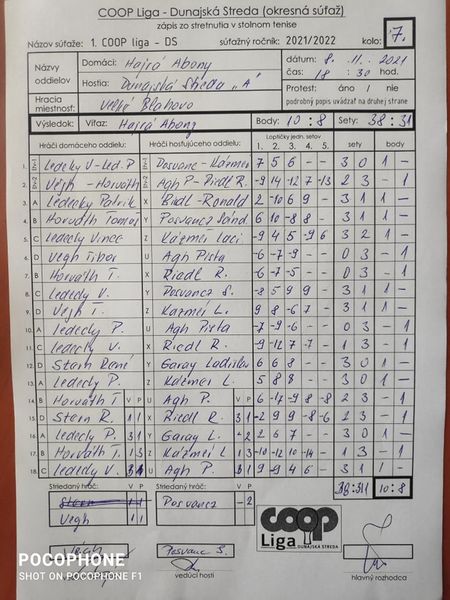 COOP Liga - Dunajská Streda (okresná súťaž)
zápis zo stretnutia v stolnom tenise
Názov súťaže: 1. COOP liga - DS súťažný ročník: 2021/2022 kolo: 7.
Názvy oddielov
Domáci: Hajrá Abony
Hostia: Dunajská Streda "A"
dátum: 8. 11. 2021
čas: 18 : 30 hod.
Hracia miestnosť: Veľké Blahovo
Protest: áno / nie
podrobný popis uvádzať na druhej strane
Výsledok: Víťaz: Hajrá Abony Body: 10 : 8 Sety: 38 : 31
Hráči domáceho oddielu: Hráči hosťujúceho oddielu: Loptičky jedn. setov sety body
1. 2. 3. 4. 5.
1. Ledecky V - Led. P Posvanc - Kázmér 7 5 6 - - 3 0 1 -
2. Vegh - Horváth Agh P - Riedl R. -9 14 -12 7 -13 2 3 - 1
3. A Ledecky Patrik X Riedl Ronald 2 -10 6 9 3 1 1 -
4. B Horváth Tomáš Y Posvancz 6 10 -8 8 3 1 1 -
5. C Ledecky Vinec Z Kázméi Laci -9 4 5 -9 6 3 2 1 -
6. D Vegh Tibor U Agh Pista -6 -7 -9 0 3 - 1
7. B Horváth T. X Riedl R. -6 -7 -5 0 3 - 1
8. C Ledecly V. Y Posvancz S. -8 5 9 9 3 1 1 -
9. D Vegh T. Z Kazmei L. 9 8 -6 7 3 1 1 -
10. A Ledecky P. U Agh Pista -7 -9 -6 0 3 - 1
11. C Ledecky V. X Riedl R. -9 -12 7 -7 1 3 - 1
12. D Stern René Y Garay Ladislav 6 6 8 3 0 1 -
13. A Ledecly P. Z Kázmei L. 5 8 8 3 0 1 -
14. B Horváth T V P U Agh P. V P 6 -8 -8 2 3 - 1
15. D Stern R. 1 1 X Riedl R. 3 1 -2 9 9 -8 -6 2 3 - 1
16. A Ledecky P. 3 1 Y Garay L. - 2 2 6 7 3 0 1 -
17. B Horváth T. 1 3 Z Kázmei L 1 3 -10 -12 10 -14 1 3 - 1
18. C Ledecky V. U Agh P. 3 1 9 -9 4 6 3 1 1 -
38:31 10:8
Striedaný hráč: V P Striedaný hráč: V P
Stern 1 1 Posvancz - 2
Vegh 1 1
coop
Liga DUNAJSKÁ STREDA
Vegh Posvanc S.
vedúci hostí hlavný rozhodca
POCOPHONE
SHOT ON POCOPHONE F1